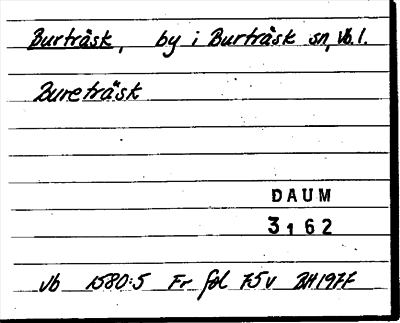 Burträsk, by i Burträsk sn, Vb. l.
Bureträsk
DAUM
3162
Vb 1580:5 Fr föl 75v BH1977